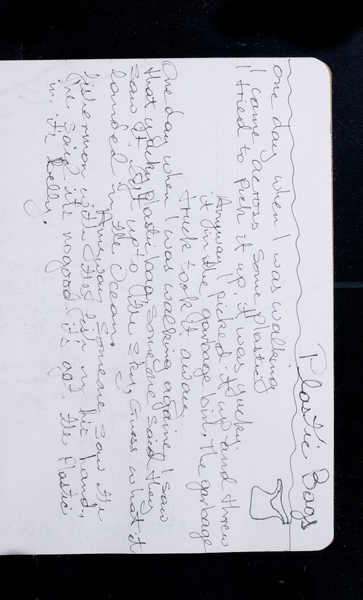 Plastic Bags
One day when I was walking
I came across some plastic,
I tried to pick it up. it was yucky.
Anyway I picked it up and threw
it in the garbage bin, the garbage
truck took it away.
One day when I was walking again, I saw
that yucky plastic bag, someone said they
saw it lift up to the sky, Guess what it
landed in the ocean.
Anyway someone saw the
fisherman with the fish in his hand,
he said it's no good it's got the plastic
in it's belly.